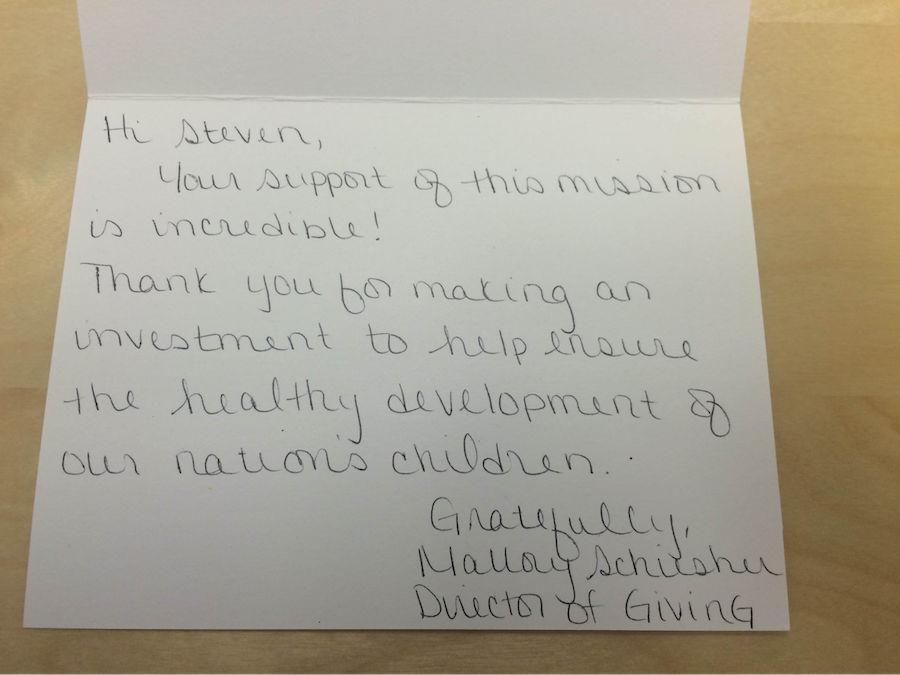 Hi Steven,
Your support of this mission
is incredible!
Thank you for making an
investment to help ensure
the healthy development of
our nation's children.
Gratefully,
Director of Giving